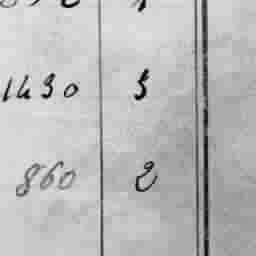 1430 3
860 2